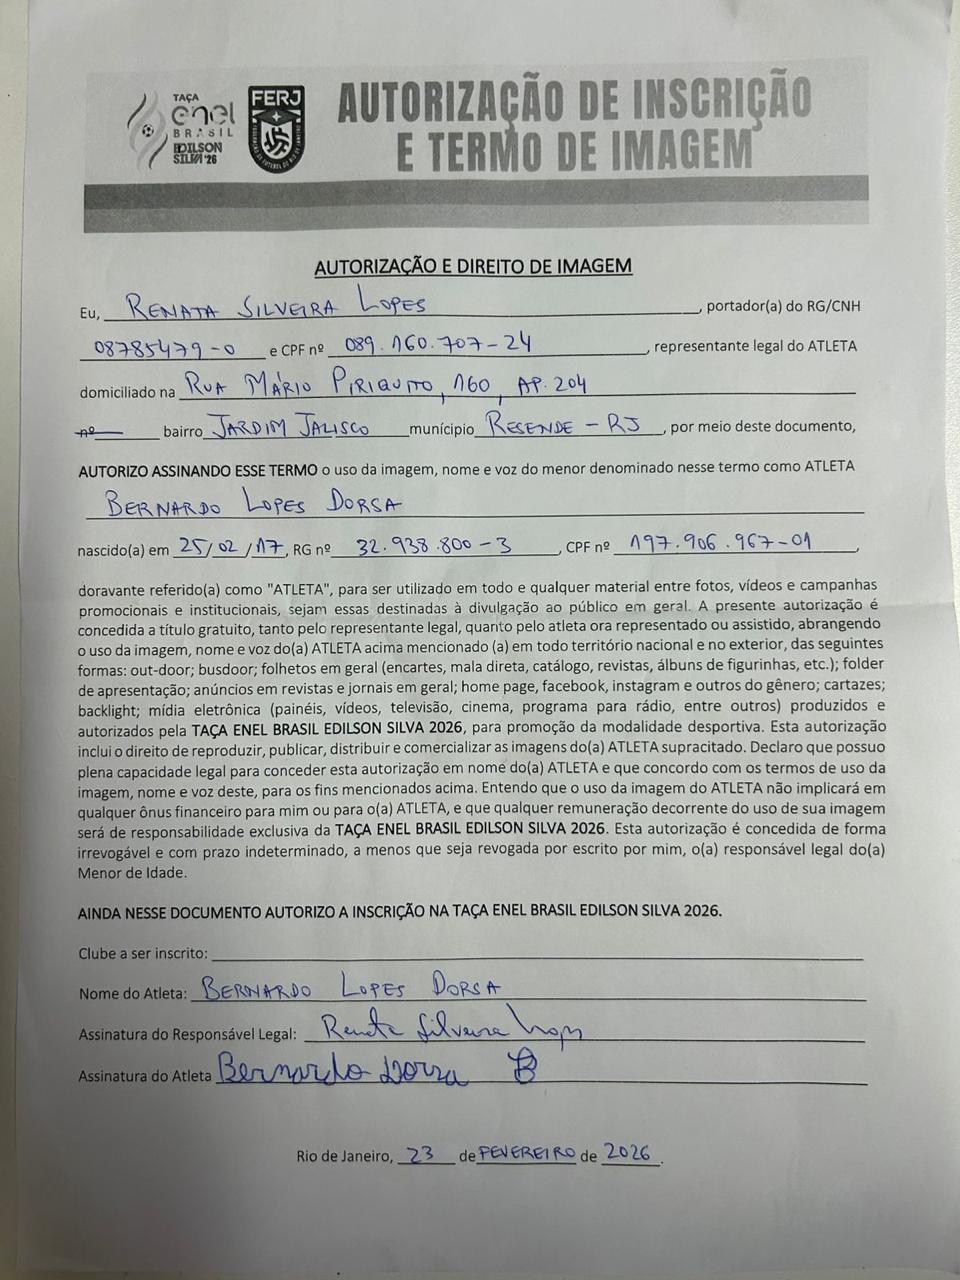 TAÇA
enel
BRASIL
EDILSON
SILVA'26
FERJ
FEDERAÇÃO DE FUTEBOL DO RIO DE JANEIRO
AUTORIZAÇÃO DE INSCRIÇÃO
E TERMO DE IMAGEM
AUTORIZAÇÃO E DIREITO DE IMAGEM
Eu, RENATA SILVEIRA LOPES, portador(a) do RG/CNH
08785479-0 e CPF nº 089.160.707-24, representante legal do ATLETA
domiciliado na RUA MÁRIO PIRIQUITO, 160, AP. 204
nº bairro JARDIM JALISCO munícipio RESENDE - RJ, por meio deste documento,
AUTORIZO ASSINANDO ESSE TERMO o uso da imagem, nome e voz do menor denominado nesse termo como ATLETA
BERNARDO LOPES DORSA
nascido(a) em 25/02/17, RG nº 32.938.800-3, CPF nº 197.906.967-01,
doravante referido(a) como "ATLETA", para ser utilizado em todo e qualquer material entre fotos, vídeos e campanhas
promocionais e institucionais, sejam essas destinadas à divulgação ao público em geral. A presente autorização é
concedida a título gratuito, tanto pelo representante legal, quanto pelo atleta ora representado ou assistido, abrangendo
o uso da imagem, nome e voz do(a) ATLETA acima mencionado (a) em todo território nacional e no exterior, das seguintes
formas: out-door; busdoor; folhetos em geral (encartes, mala direta, catálogo, revistas, álbuns de figurinhas, etc.); folder
de apresentação; anúncios em revistas e jornais em geral; home page, facebook, instagram e outros do gênero; cartazes;
backlight; mídia eletrônica (painéis, vídeos, televisão, cinema, programa para rádio, entre outros) produzidos e
autorizados pela TAÇA ENEL BRASIL EDILSON SILVA 2026, para promoção da modalidade desportiva. Esta autorização
inclui o direito de reproduzir, publicar, distribuir e comercializar as imagens do(a) ATLETA supracitado. Declaro que possuo
plena capacidade legal para conceder esta autorização em nome do(a) ATLETA e que concordo com os termos de uso da
imagem, nome e voz deste, para os fins mencionados acima. Entendo que o uso da imagem do ATLETA não implicará em
qualquer ônus financeiro para mim ou para o(a) ATLETA, e que qualquer remuneração decorrente do uso de sua imagem
será de responsabilidade exclusiva da TAÇA ENEL BRASIL EDILSON SILVA 2026. Esta autorização é concedida de forma
irrevogável e com prazo indeterminado, a menos que seja revogada por escrito por mim, o(a) responsável legal do(a)
Menor de Idade.
AINDA NESSE DOCUMENTO AUTORIZO A INSCRIÇÃO NA TAÇA ENEL BRASIL EDILSON SILVA 2026.
Clube a ser inscrito:
Nome do Atleta: BERNARDO LOPES DORSA
Assinatura do Responsável Legal: Renata Silveira Lopes
Assinatura do Atleta Bernardo Dorsa B
Rio de Janeiro, 23 de FEVEREIRO de 2026.